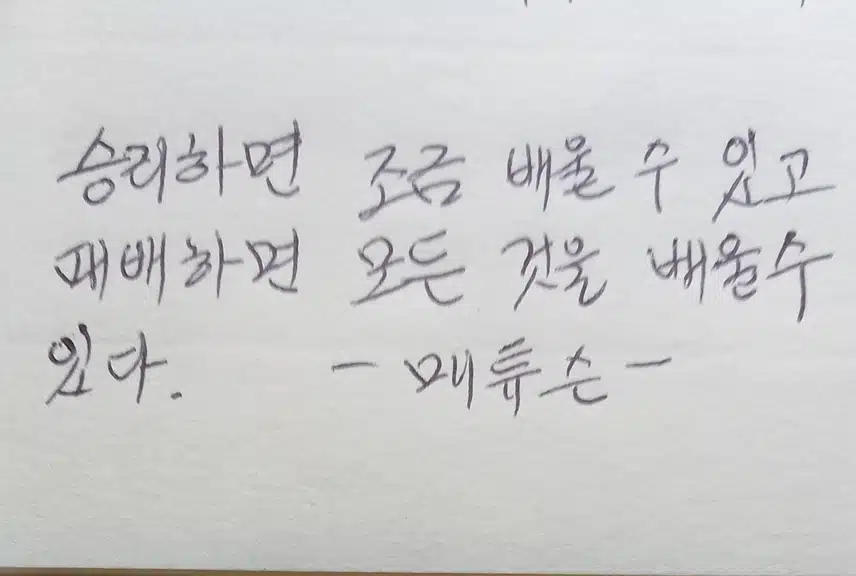 승리하면 조금 배울 수 있고
패배하면 모든 것을 배울수
있다. - 매튜슨 -